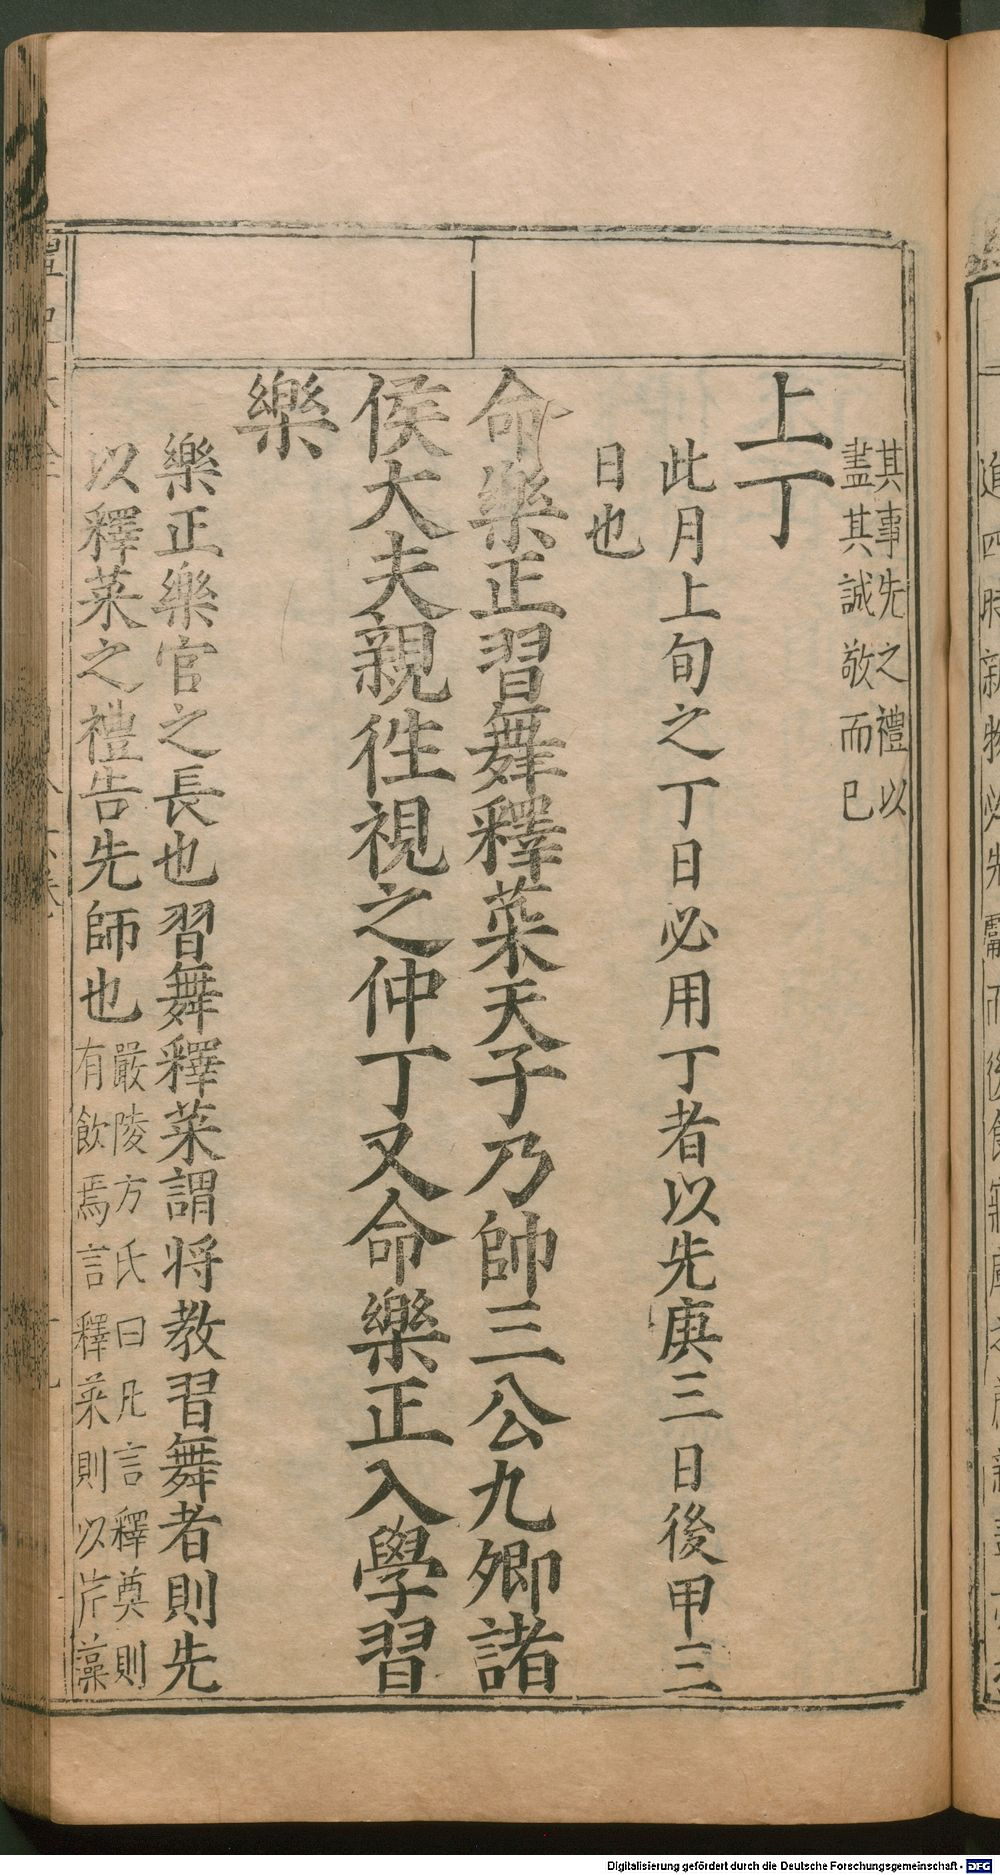 其事先之禮以
盡其誠敬而已
上丁
此月上旬之丁日必用丁者以先庚三日後甲三
日也
命樂正習舞釋菜天子乃帥三公九卿諸
侯大夫親徃視之仲丁又命樂正入學習
樂
樂正樂官之長也習舞釋菜謂将教習舞者則先
以釋菜之禮告先師也
嚴陵方氏曰凡言釋奠則
有飲焉言釋菜則以芹藻
Digitalisierung gefördert durch die Deutsche Forschungsgemeinschaft - DFG